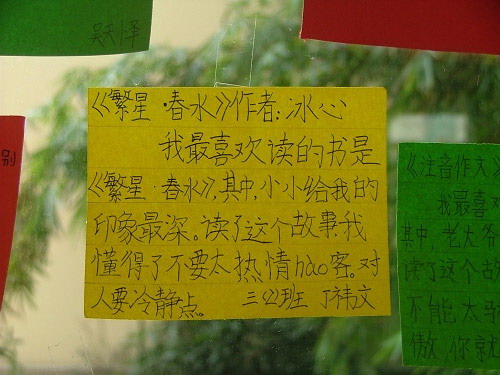 吴天泽
《繁星·春水》作者:冰心
我最喜欢读的书是
《繁星·春水》,其中,小小给我的
印象最深。读了这个故事我
懂得了不要太热情hào客。对
人要冷静点。 三(2)班 丁祎文
别
《注音作文》
我最喜
其中,老大爷
读了这个故
不能太骄
傲,你就